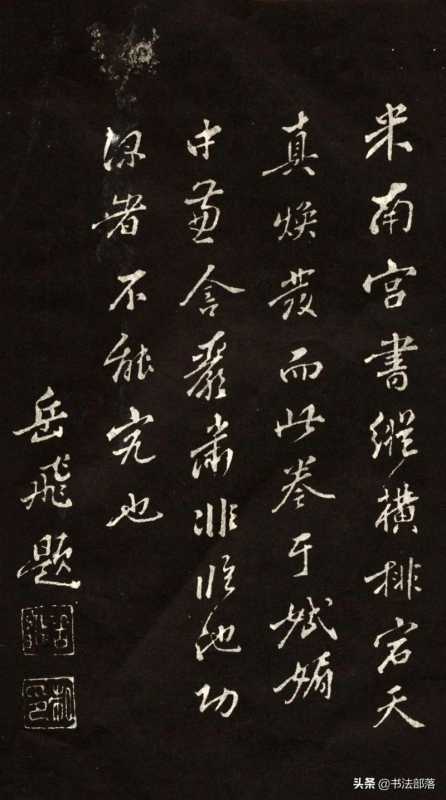 米南宫書縱橫排宕天
真煥發而此卷于娬媚
中兼含嚴肅非臨池功
深者不能究也
岳飛題
头条 @书法部落